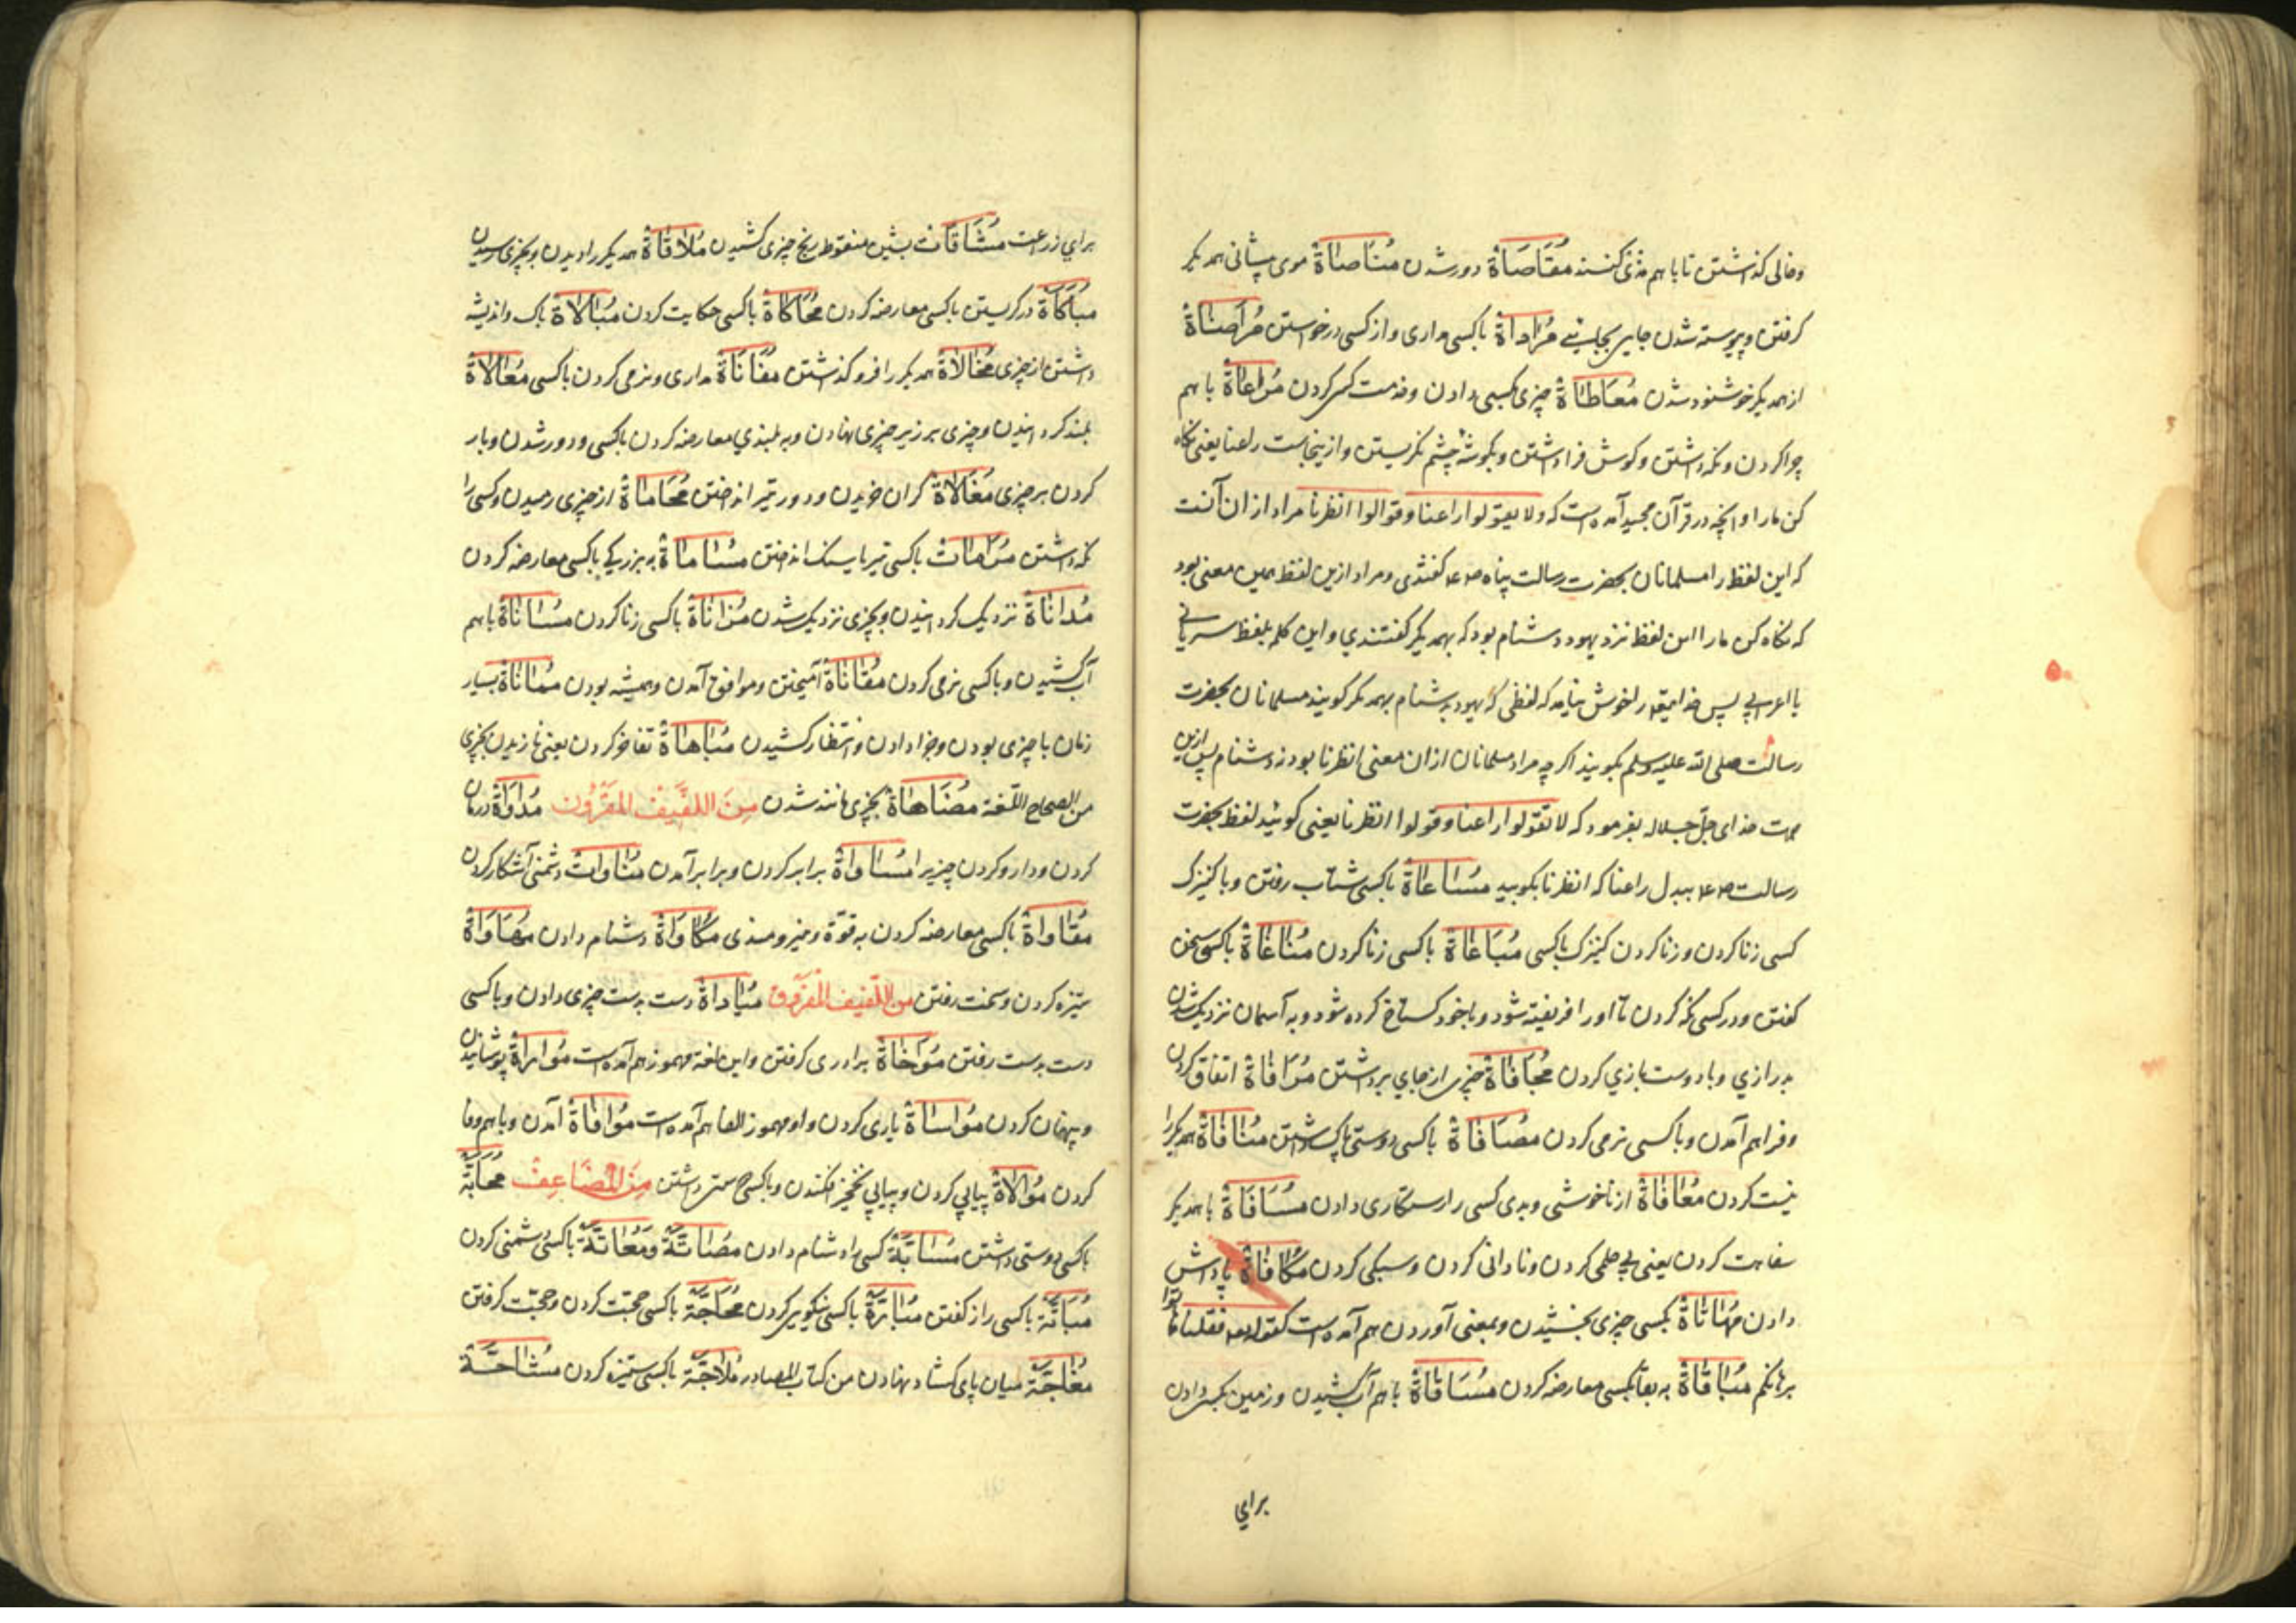 وخالی کذاشتن تا باهم مذی کنند مُقَاصَاةٌ دور شدن مُنَاصَاةٌ موی پیشانی همدیکر
کرفتن وپیوسته شدن جایی بجایی مُرَادَاةٌ باکسی مداری واز کسی درخواستن مُرَاضَاةٌ
از همدیکر خوشنود شدن مُعَاطَاةٌ چیزی بکسی دادن وخدمت کسی کردن مُرَاعَاةٌ باهم
چرا کردن ونکه داشتن وکوش فرا داشتن وبکوشهٔ چشم نکریستن وازینجاست راعنا یعنی نکاه
کن ما را وانچه در قرآن مجید آمده است که ولا یقولوا راعنا وقوالوا انظرنا مراد از ان آنست
که این لفظ را مسلمانان بحضرت رسالت پناه گفتندی ومراد ازین لفظ همین معنی بود
که نکاه کن ما را این لفظ نزد یهود دشنام بود که بهمدیکر کفتندی واین کلمه بلفظ سریانی
یا اعرابی پس خدایتعالی را خوش نیامد که لفظی که یهود بدشنام بهمدیکر کویند مسلمانان بحضرت
رسالت صلی الله علیه وسلم بکویند اکرچه مراد مسلمانان از ان معنی انظرنا بود نه دشنام پس ازین
جهت خدای جلّ جلاله بفرمود که لا تقولوا راعنا وقولوا انظرنا یعنی کوئید لفظ بحضرت
رسالت ببدل راعنا که انظرنا بکویید مُسَاعَاةٌ باکسی شتاب رفتن وبا کنیزک
کسی زنا کردن وزنا کردن کنیزک باکسی مُبَاغَاةٌ باکسی زنا کردن مُنَاغَاةٌ باکسی سخن
کفتن ودر کسی نکه کردن تا اورا فریفته شود وباخود کستاخ کرده شود وبه آسمان نزدیک شدن
بدرازی وبا دوست بازی کردن مُجَافَاةٌ چیزی از جای برداشتن مُرَافَاةٌ اتفاق کردن
وفراهم آمدن وباکسی نرمی کردن مُصَافَاةٌ باکسی دوستی پاک داشتن مُنَافَاةٌ همدیکر را
نیست کردن مُعَافَاةٌ از ناخوشی وبدی کسی را رستکاری دادن مُسَافَاةٌ باهمدیکر
سفاهت کردن یعنی بی حلمی کردن ونادانی کردن وسبکی کردن مُکَافَاةٌ پاداش
دادن مُهَاتَاةٌ بکسی چیزی بخشیدن وبمعنی آوردن هم آمده است کقوله تعالی فقلنا هاتوا
برهانکم مُبَاقَاةٌ به بقا بکسی معارضه کردن مُسَاقَاةٌ باهم آب کشیدن وزمین بکسی دادن
برای
برای زراعت مُشَاقَات بشین منقوط رنج چیزی کشیدن مُلَاقَاةٌ همدیکر را دیدن وبچیزی رسیدن
مُبَاکَاةٌ در کریستن باکسی معارضه کردن مُحَاکَاةٌ باکسی حکایت کردن مُبَالَاةٌ باک واندیشه
داشتن از چیزی مُخَالَاةٌ همدیکر را فرو کذاشتن مُفَانَاةٌ مداری ونرمی کردن باکسی مُعَالَاةٌ
بلند کردانیدن وچیزی بر زبر چیزی نهادن وبه بلندی معارضه کردن باکسی ودور شدن وبار
کردن بر چیزی مُغَالَاةٌ کران خریدن ودور تیر انداختن مُحَامَاةٌ از چیزی رمیدن وکسی را
نکه داشتن مُرَامَاتٌ باکسی تیر یا سنک انداختن مُسَامَاةٌ به بزرکی باکسی معارضه کردن
مُدَانَاةٌ نزدیک کردانیدن وبچیزی نزدیک شدن مُزَانَاةٌ باکسی زنا کردن مُسَانَاةٌ باهم
آب کشیدن وباکسی نرمی کردن مُقَانَاةٌ آمیختن وموافق آمدن وهمیشه بودن مُمَانَاةٌ بسیار
زمان باچیزی بودن وجزا دادن وانتظار کشیدن مُبَاهَاةٌ تفاخر کردن یعنی نازیدن بچیزی
من الصحاح اللغة مُضَاهَاةٌ بچیزی مانند شدن مِنَ اللَّفِیفِ المَقْرُونِ مُدَاوَاةٌ درمان
کردن ودارو کردن چیزیرا مُسَاوَاةٌ برابر کردن وبرابر آمدن مُنَاوَاتٌ دشمنی آشکار کردن
مُقَاوَاةٌ باکسی معارضه کردن به قوّة مُکَاوَاةٌ دشنام دادن مُهَاوَاةٌ
ستیزه کردن وسخت رفتن من اللَّفِیفِ المَفْرُوقِ مُیَادَاةٌ دست بدست چیزی دادن وباکسی
دست بدست رفتن مُوَاخَاةٌ برادری کرفتن واین لغة مهموز هم آمده است مُوَارَاةٌ پوشانیدن
وپنهان کردن مُوَاسَاةٌ یاری کردن واو مهموز الفا هم آمده است مُوَافَاةٌ آمدن وباهم وفا
کردن مُوَالَاةٌ پیاپی کردن وپیاپی نخجیر افکندن وباکسی داشتن مِنَ المُضَاعِفِ مُحَابَّةٌ
باکسی دوستی داشتن مُسَابَّةٌ کسی را دشنام دادن مُصَاتَّةٌ ومُعَاتَّةٌ باکسی دشمنی کردن
مُبَاثَّةٌ باکسی راز کفتن مُبَارَّةٌ باکسی نیکویی کردن مُحَاجَّةٌ باکسی حجّت کردن وحجّت کرفتن
مُفَاجَّةٌ میان پای کشاد نهادن من کتاب المصادر مُلَاجَّةٌ باکسی ستیزه کردن مُشَاحَّةٌ